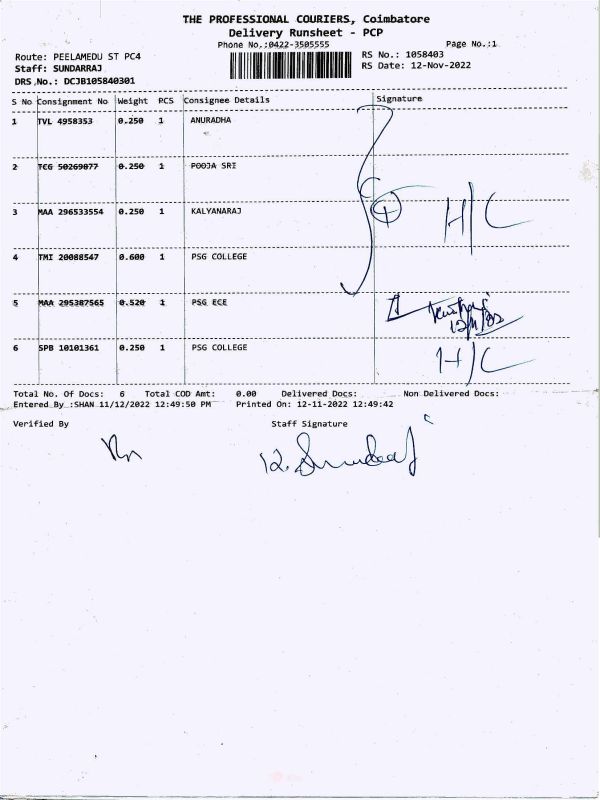 THE PROFESSIONAL COURIERS, Coimbatore
Delivery Runsheet - PCP
Phone No.:0422-3505555 Page No.:1
Route: PEELAMEDU ST PC4 RS No.: 1058403
Staff: SUNDARRAJ RS Date: 12-Nov-2022
DRS,No.: DCJB105840301
S No Consignment No Weight PCS Consignee Details Signature
1 TVL 4958353 0.250 1 ANURADHA
2 TCG 50269877 0.250 1 POOJA SRI
3 MAA 296533554 0.250 1 KALYANARAJ H/C
4 TMI 20088547 0.600 1 PSG COLLEGE
5 MAA 295387565 0.520 1 PSG ECE
6 SPB 10101361 0.250 1 PSG COLLEGE H/C
Total No. Of Docs: 6 Total COD Amt: 0.00 Delivered Docs: Non Delivered Docs:
Entered By :SHAN 11/12/2022 12:49:50 PM Printed On: 12-11-2022 12:49:42
Verified By Staff Signature